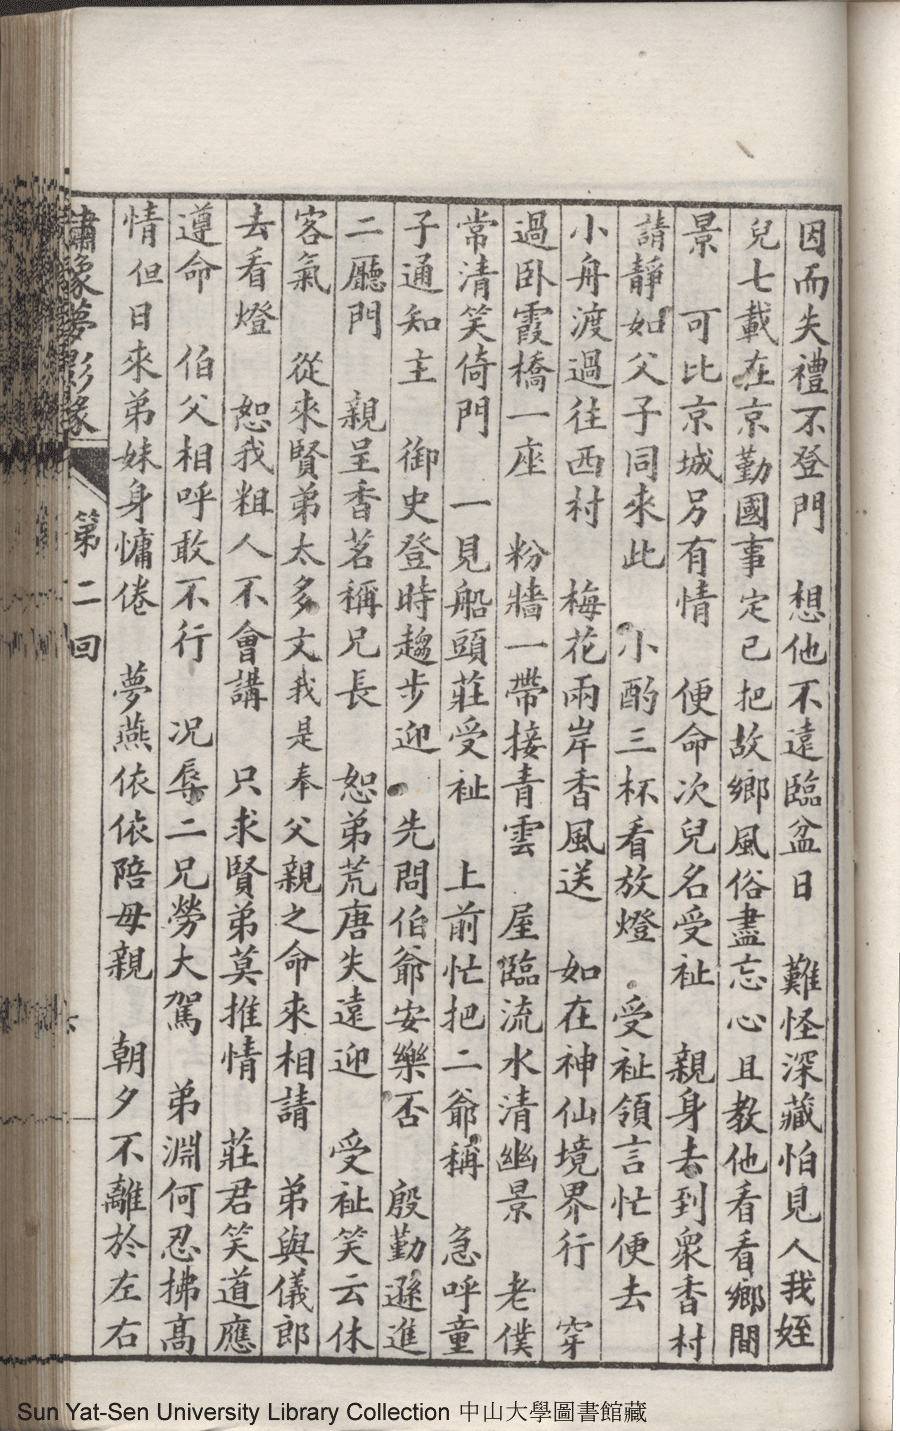 因而失禮不登門　想他不遠臨盆日　難怪深藏怕見人我姪
兒七載在京勤國事定已把故鄉風俗盡忘心且教他看看鄉間
景　可比京城另有情　便命次兒名受祉　親身去到衆香村
請靜如父子同來此　小酌三杯看放燈　受祉領言忙便去
小舟渡過往西村　梅花兩岸香風送　如在神仙境界行　穿
過卧霞橋一座　粉牆一帶接青雲　屋臨流水清幽景　老僕
常清笑倚門　一見船頭莊受祉　上前忙把二爺稱　急呼童
子通知主　御史登時趨步迎　先問伯爺安樂否　殷勤遜進
二廳門　親呈香茗稱兄長　恕弟荒唐失遠迎　受祉笑云休
客氣　從來賢弟太多文我是奉父親之命來相請　弟與儀郎
去看燈　恕我粗人不會講　只求賢弟莫推情　莊君笑道應
遵命　伯父相呼敢不行　况辱二兄勞大駕　弟淵何忍拂高
情但日來弟妹身慵倦　夢燕依依陪母親　朝夕不離於左右
繡像夢影緣　第二回
Sun Yat-Sen University Library Collection 中山大學圖書館藏